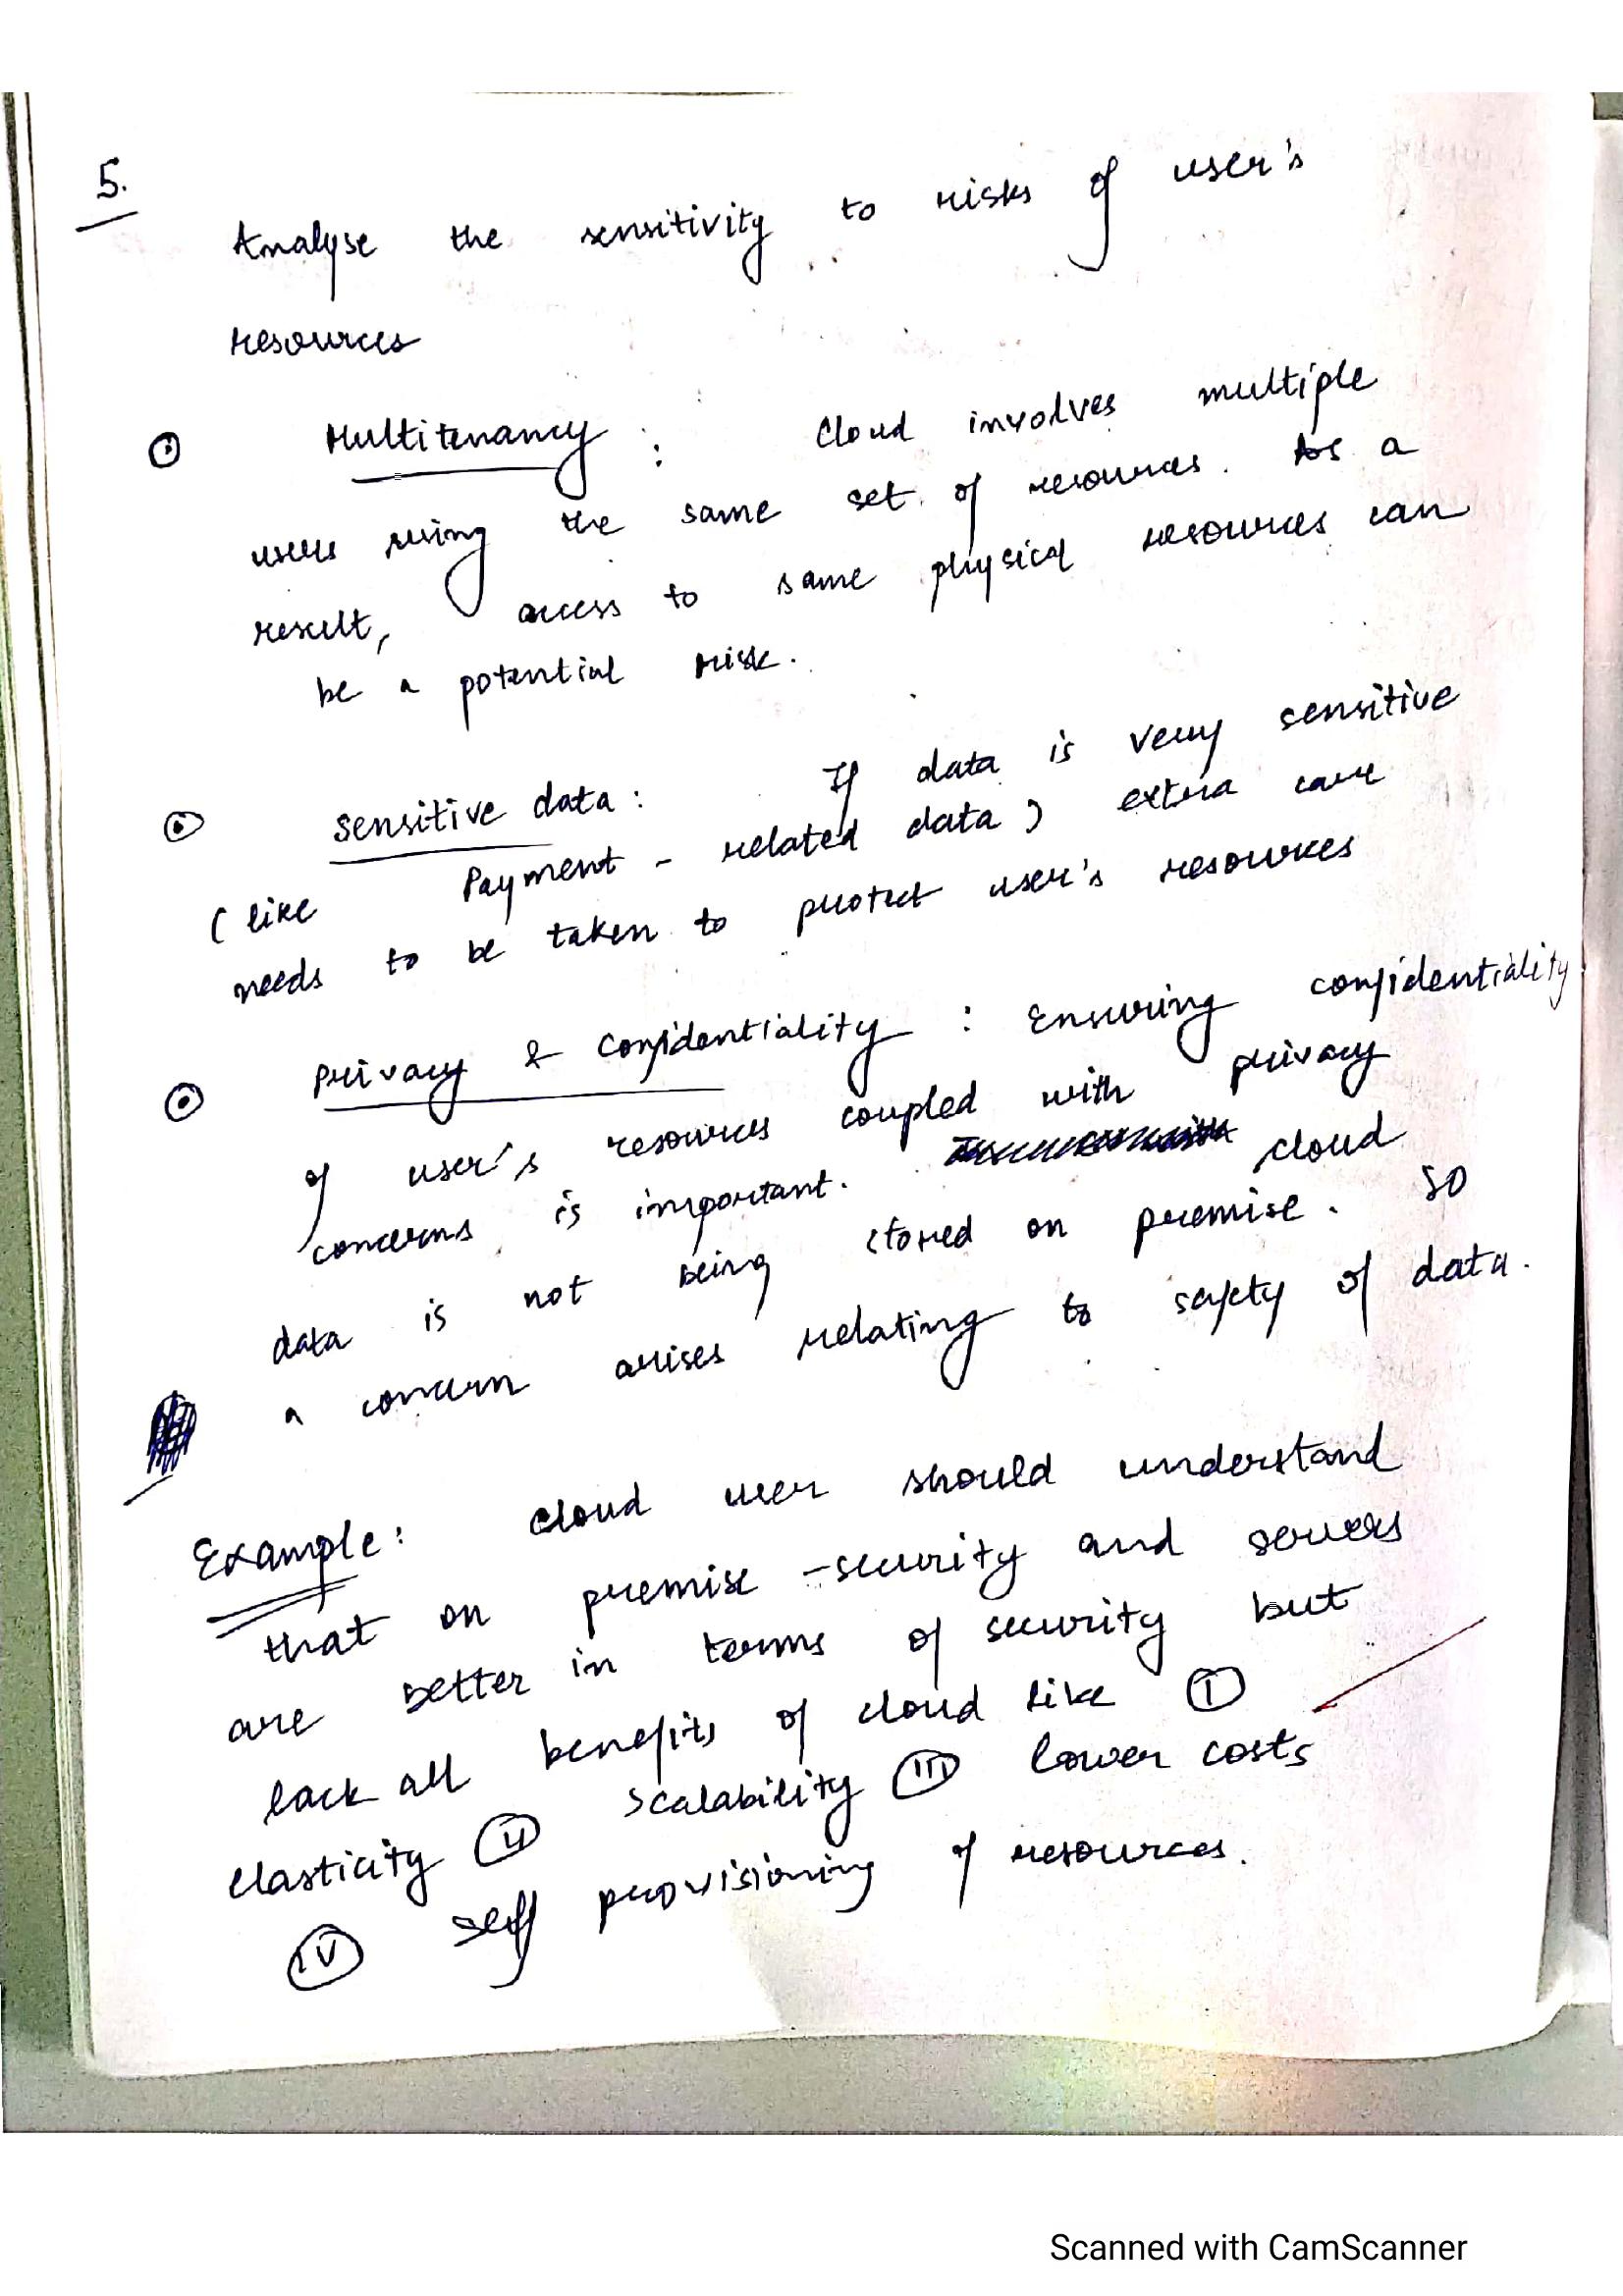 5.
Analyse the sensitivity to risks of user's
resources
Multitenancy : Cloud involves multiple
users using the same set of resources. As a
result, access to same physical resources can
be a potential risk.
Sensitive data : If data is very sensitive
(like Payment - related data) extra care
needs to be taken to protect user's resources
Privacy & Confidentiality : Ensuring confidentiality
of user's resources coupled with privacy
concerns is important. cloud
data is not being stored on premise. So
a concern arises relating to safety of data.
Example: Cloud user should understand
that on premise -security and servers
are better in terms of security but
lack all benefits of cloud like (i)
elasticity (ii) scalability (iii) lower costs
(iv) self provisioning of resources.
Scanned with CamScanner